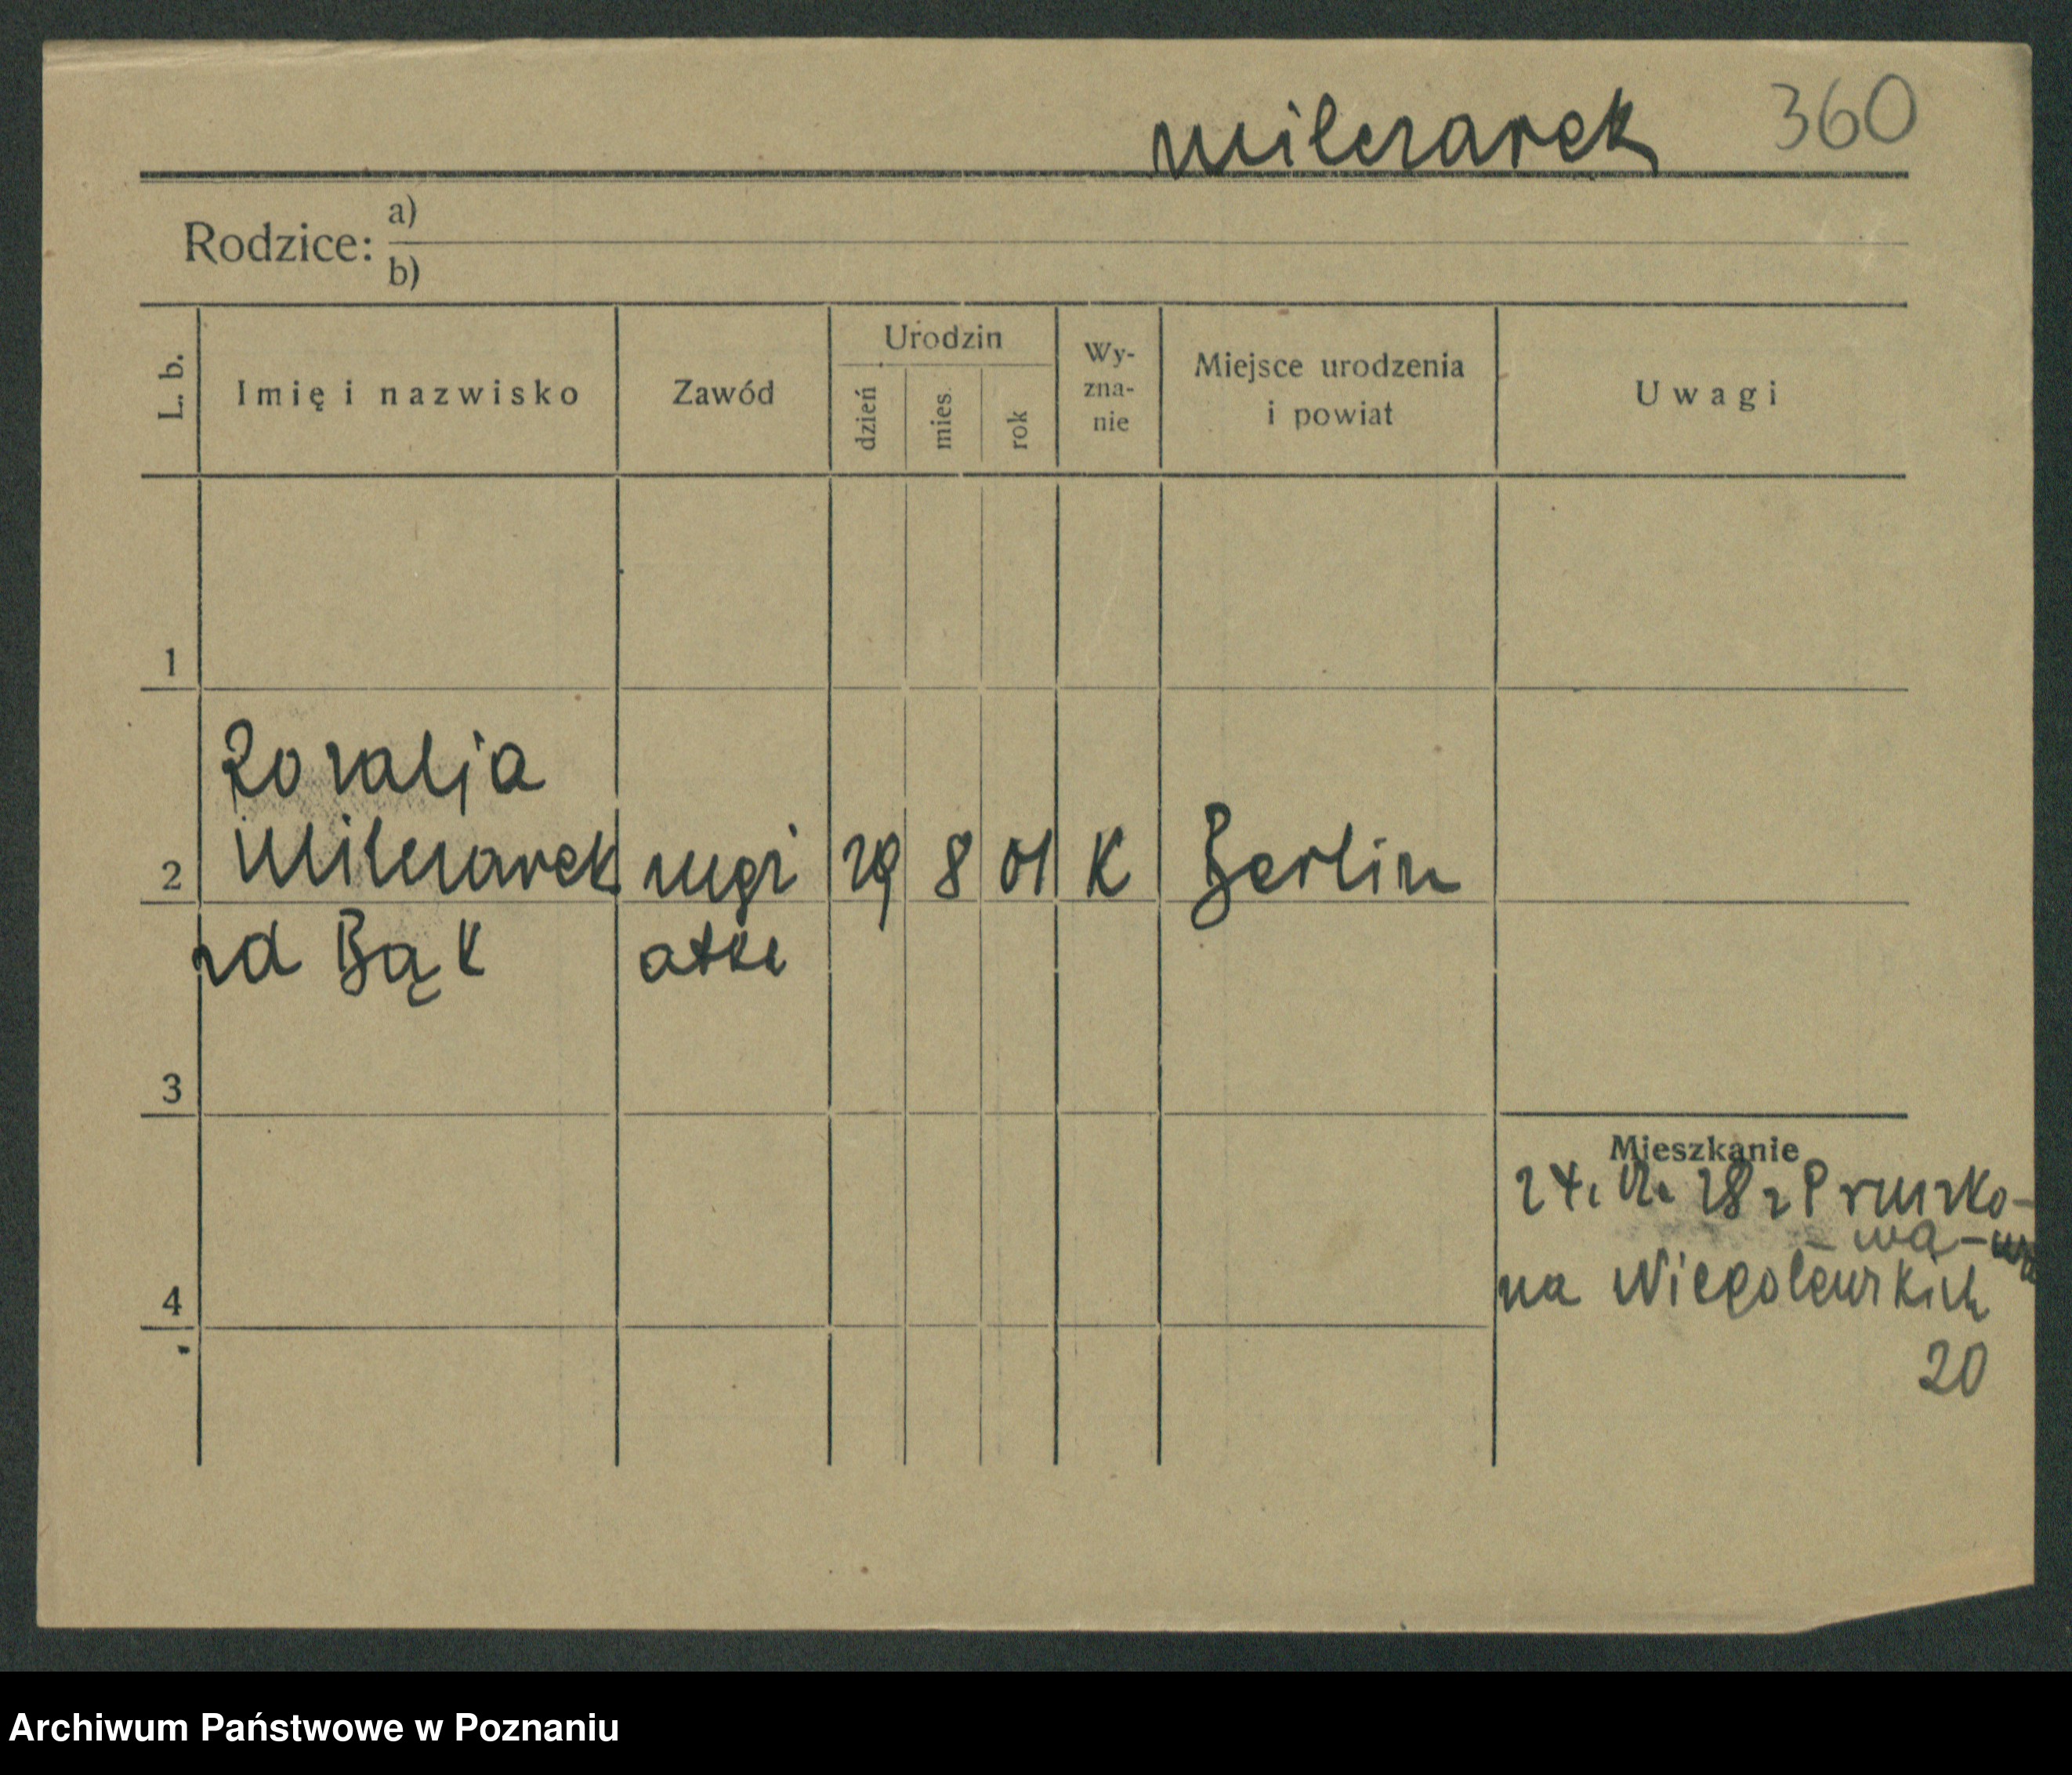 Milczarek 360
Rodzice: a)
b)
L. b.
Imię i nazwisko
Zawód
Urodzin
dzień
mies.
rok
Wy-
zna-
nie
Miejsce urodzenia
i powiat
Uwagi
1
Rozalja
2 Milczarek 29 8 01 K Berlin
zd Bąk
3
Mieszkanie
24. 12. 28 z Pruszko-
wa
4 na Niegolewskich
20
Archiwum Państwowe w Poznaniu